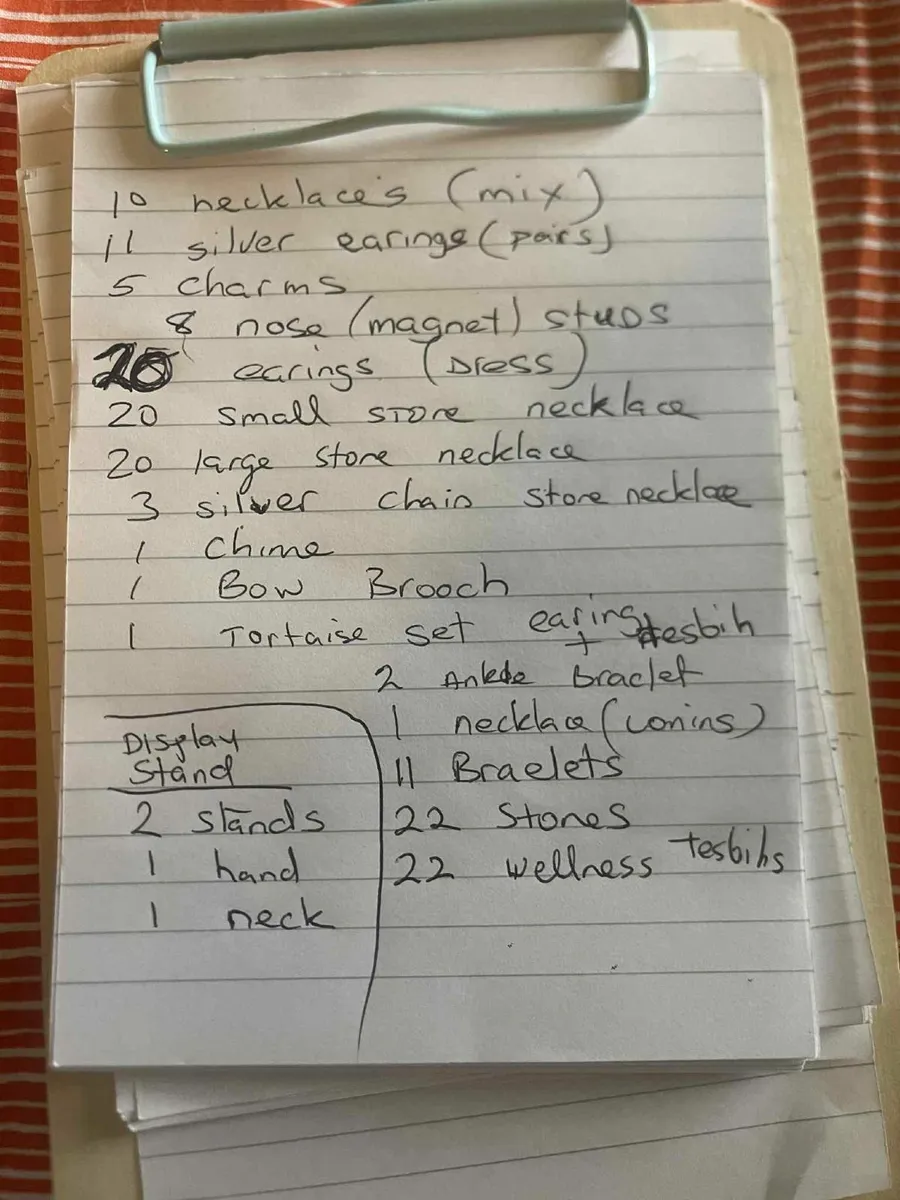 10 necklace's (mix)
11 silver earings (pairs)
5 charms
8 nose (magnet) studs
20 earings (Dress)
20 small store necklace
20 large store necklace
3 silver chain store necklace
1 Chime
1 Bow Brooch
1 Tortaise set earing + tesbih
2 Ankle Braclet
1 necklace (conins)
11 Braelets
22 Stones
22 wellness tesbihs
Display
Stand
2 stands
1 hand
1 neck